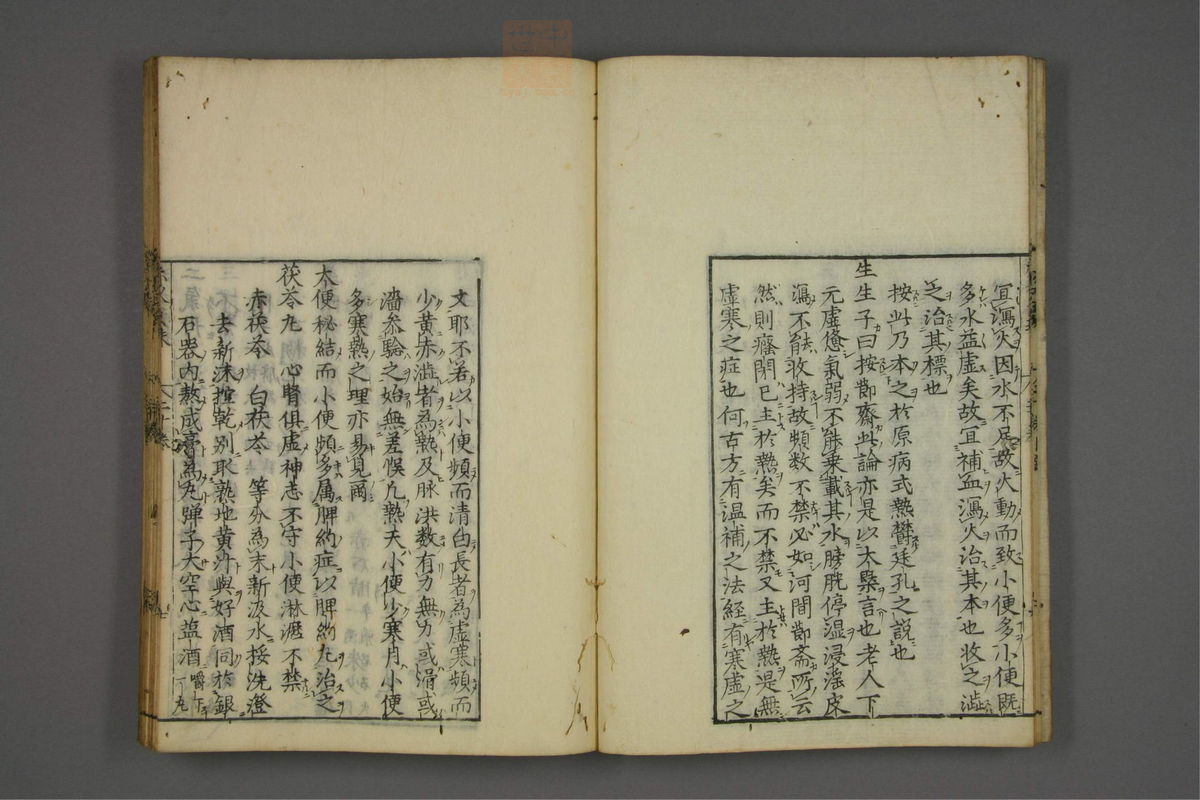 宜瀉火因水不足故火動而致小便多小便既
多水益虚矣故宜補血瀉火治其本也收之澁
之治其標也
按此乃本之於原病式熱欝廷孔之説也
生生子曰按節齋此論亦是以大槩言也老人下
元虚憊氣弱不能乗載其水膀胱停湿浸滛皮
瀉不能收持故頻数不禁必如河間節斎所云
然則癃閉已主於熱矣而不禁又主於熱是無
虚寒之症也何古方有温補之法経有寒虚之
文耶不若以小便頻而清白長者為虚寒頻而
少黄赤澁者為熱及脉洪数有力無力或涓或
濇参驗之始無差悞凢熱天小便少寒月小便
多寒熱之理亦易見爾
大便秘結而小便頻多属脾約症以脾約丸治之
茯苓丸 心腎俱虚神志不守小便淋瀝不禁
赤茯苓 白茯苓 等分為末新汲水挼洗澄
去新沫控乾別取熟地黄汁與好酒同於銀
石器内熬成膏為丸弾子大空心盐酒嚼下一丸